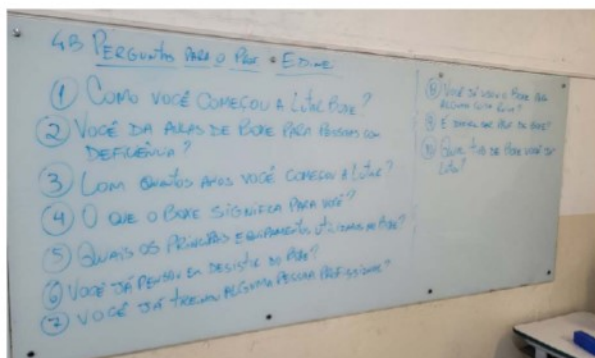 4B PERGUNTAS PARA O PROF EDINE
① COMO VOCÊ COMEÇOU A LUTAR BOXE?
② VOCÊ DA AULAS DE BOXE PARA PESSOAS COM
DEFICÊNCIA?
③ COM QUANTOS ANOS VOCÊ COMEÇOU A LUTAR?
④ O QUE O BOXE SIGNIFICA PARA VOCÊ?
⑤ QUAIS OS PRINCIPAIS EQUIPAMENTOS UTILIZADOS NO BOXE?
⑥ VOCÊ JÁ PENSOU EM DESISTIR DO BOXE?
⑦ VOCÊ JÁ TREINOU ALGUMA PESSOA PROFISSIONAL?
⑧ VOCÊ JÁ USOU O BOXE PARA
ALGUMA COISA RUIM?
⑨ É SER PROF DE BOXE?
⑩ QUE DE BOXE VOCÊ
LUTA?